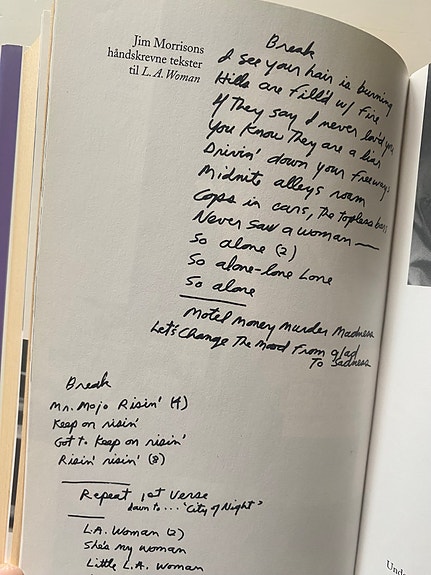 Jim Morrisons
håndskrevne tekster
til L.A. Woman
Break
I see your hair is burning
Hills are Fill'd w/ Fire
If They say I never lov'd you
You Know They are a liar
Drivin' down your Freeways
Midnite alleys roam
Cops in cars, The topless bars
Never saw a woman —
So alone (2)
So alone-lone Lone
So alone
Motel Money Murder Madness
Let's Change The Mood From glad
To Sadness
Break
Mr. Mojo Risin' (4)
Keep on risin'
Got to Keep on risin'
Risin' risin' (8)
Repeat 1st Verse
down to... 'City of Night'
L.A. Woman (2)
She's my woman
Little L.A. Woman